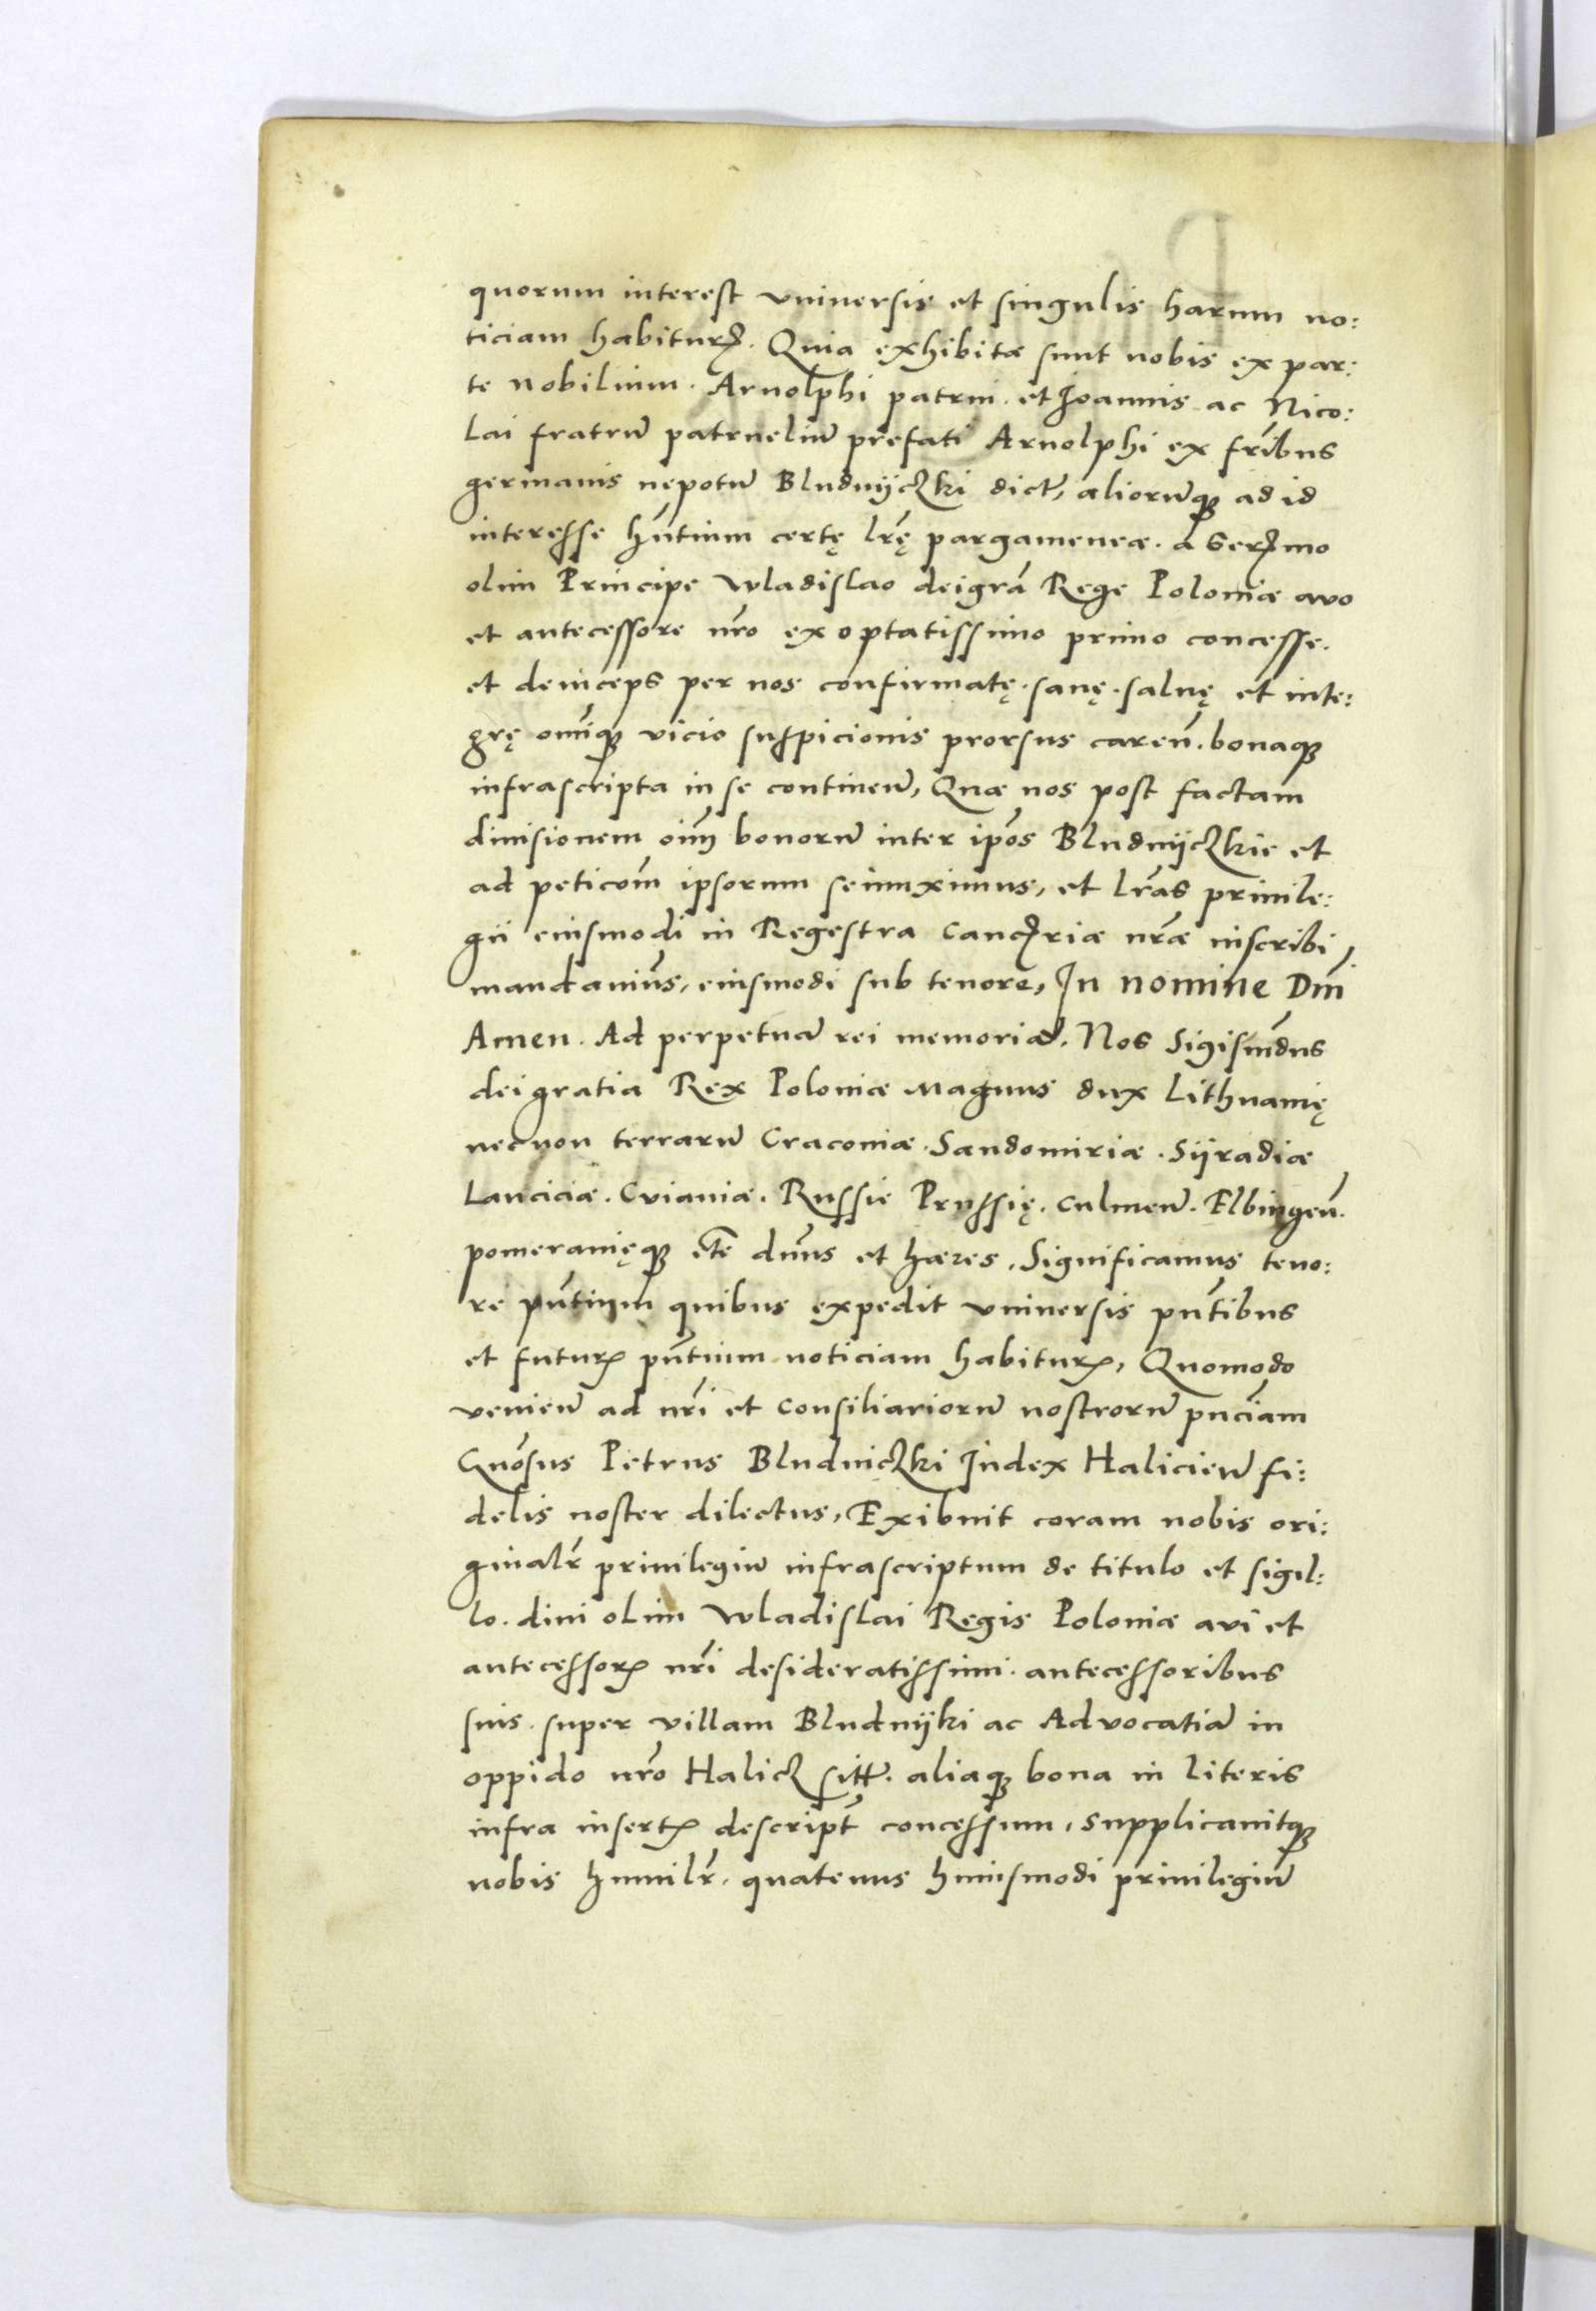 quorum interest vniuersis et singulis harum no:
ticiam habiturꝭ. Quia exhibitæ sunt nobis ex par:
te Nobilium. Arnolphi patrui. et Joannis ac Nico:
lai fratrū patrueliū prefati Arnolphi ex fr̃ibus
germanis nepotū Bludnyczki dict̃, aliorūqꝫ ad id
interesse hñtium certę lr̃ę pargameneæ. a Serꝫmo
olim Principe Wladislao dei grã Rege Poloniæ auo
et antecessore nr̃o exoptatissimo primo concesse.
et deinceps per nos confirmatę. sanę. saluę et inte:
grę om̃iqꝫ vicio suspicionis prorsus careñ. bonaqꝫ
infrascripta in se contineñ, Quæ nos post factam
diuisionem oĩm bonorū inter ip̃os Bludnyczkie et
ad peticõm ipsorum seiunximus, et lr̃as priuile:
gii eiusmodi in Regestra Cancꝫriæ nr̃æ inscribi
mandauim̃s, eiusmodi sub tenore, In nomine Dñi
Amen. Ad perpetuā rei memoriā. Nos Sigism̃dus
dei gratia Rex Poloniæ Magnus dux Lithuanię
necnon terrarū Cracoviæ. Sandomiriæ. Syradiæ
Lanciciæ. Cviaviæ. Russie Prussię. Culmeñ. Elbingeñ.
pomeranięqꝫ etc̃ dn̄us et hæres. Significamus teno:
re pñtium quibus expedit vniuersis pñtibus
et futurꝭ pñtium noticiam habiturꝭ, Quomodo
venieñ ad nr̃i et consiliariorū nostrorū pñciam
Gnõsus Petrus Bludniczki Judex Halicieñ fi:
delis noster dilectus, Exibuit coram nobis ori:
ginalr̃ priuilegiū infrascriptum de titulo et sigil:
lo. diui olim Wladislai Regis Poloniæ aui et
antecessorꝭ nr̃i desideratissimi. antecessoribus
suis. super villam Bludnyki ac Advocatiā in
oppido nr̃o Halicz sitt̃. aliaqꝫ bona in literis
infra insertꝭ descript̃ concessum, Supplicauitqꝫ
nobis humilr̃. quatenus huiusmodi priuilegiū